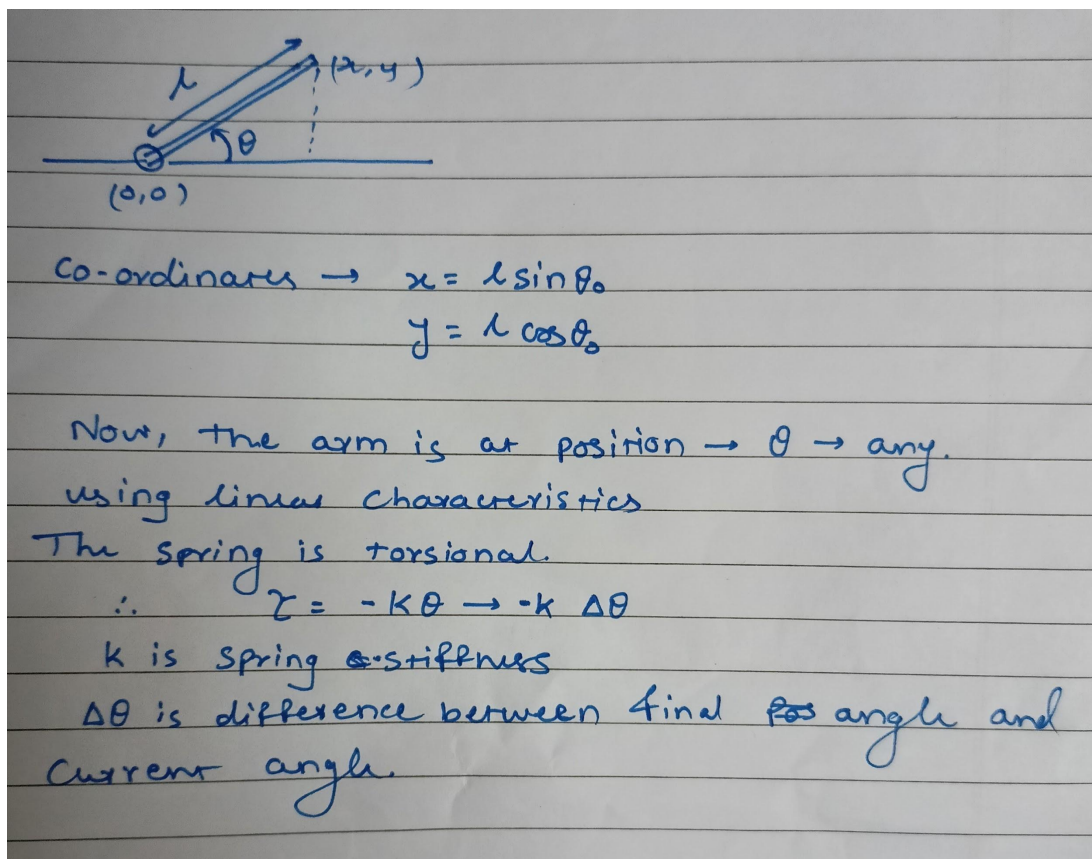 l
(x, y)
θ
(0,0)
Co-ordinates → x = l sin θ₀
y = l cos θ₀
Now, the arm is at position → θ → any.
using linear characteristics
The spring is torsional.
∴ τ = -Kθ → -k Δθ
k is spring stiffness
Δθ is difference between final angle and
current angle.